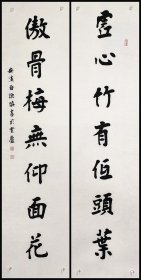 虚心竹有低頭葉
傲骨梅無仰面花